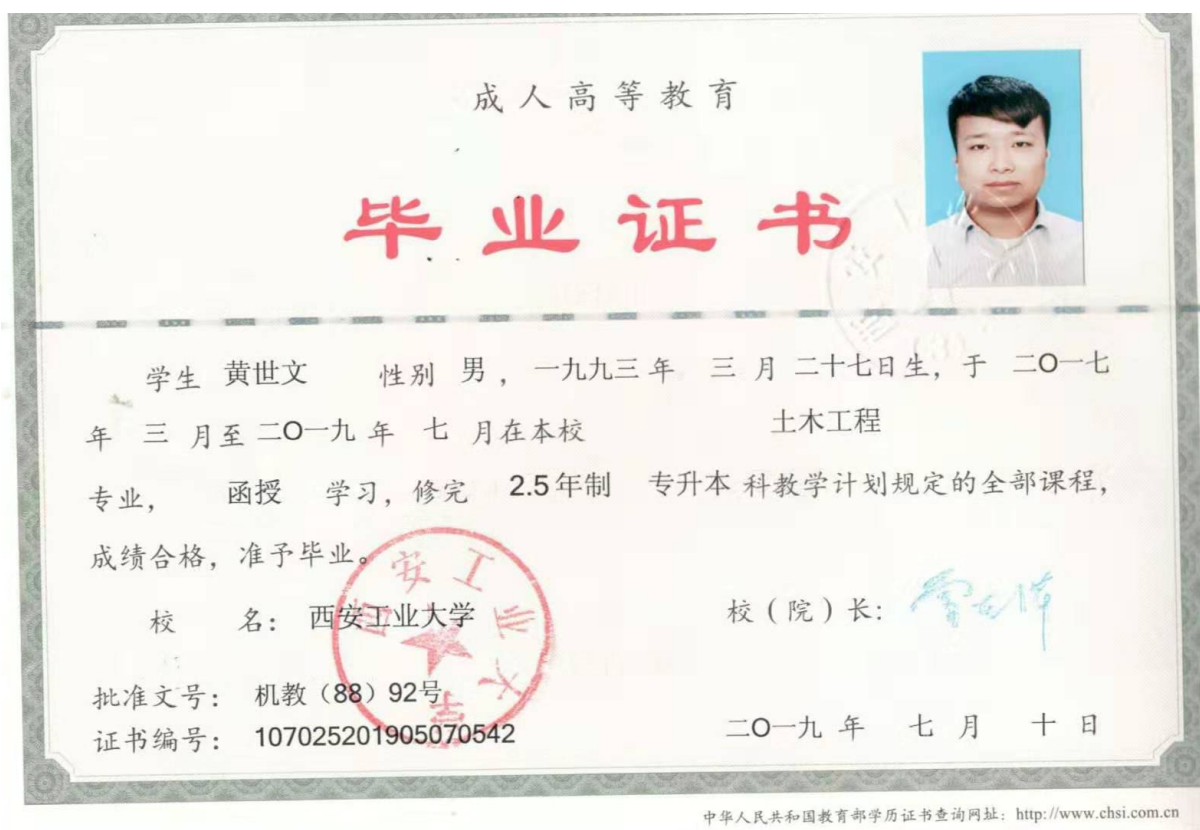 成人高等教育
毕业证书
学生 黄世文 性别 男，一九九三年 三 月 二十七日生，于 二〇一七
年 三 月至 二〇一九 年 七 月在本校 土木工程
专业， 函授 学习，修完 2.5年制 专升本 科教学计划规定的全部课程，
成绩合格，准予毕业。
校 名： 西安工业大学
校（院）长：
西安工业大学
批准文号： 机教（88）92号
证书编号： 107025201905070542
二〇一九 年 七 月 十 日
中华人民共和国教育部学历证书查询网址：http://www.chsi.com.cn